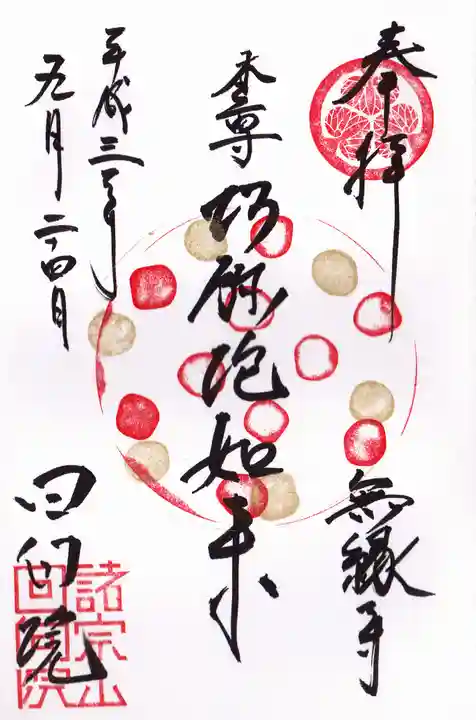 奉拝
無縁寺
本尊
阿弥陀如来
平成三十年
月二十四日
回向院
諸宗山
回向院